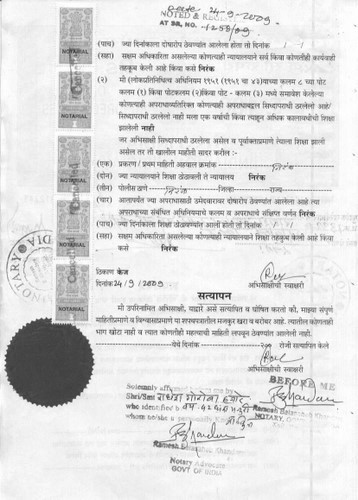 Date 24-9-2009
NOTED & REG
AT SR. NO. 1258/09
(पाच) ज्या दिनांकाला दोषारोप ठेवण्यांत आलेला होता तो दिनांक
(सहा) सक्षम अधिकारिता असलेल्या कोणत्याही न्यायालयाने सर्व किंवा कोणतीही कार्यवाही
तहकुब केली आहे किंवा कसे निरंक
(२) मी (लोकप्रतिनिधित्व अधिनियम १९५१ (१९५१ चा ४३)याच्या कलम ८ च्या पोट
कलम (१) किंवा पोटकलम (२)किंवा पोट - कलम (३) मध्ये समावेश केलेल्या
कोणत्याही अपराधाव्यतिरिक्त कोणत्याही अपराधाबद्दल सिध्दापराधी ठरलेलो आहे/
सिध्दापराधी ठरलेलो नाही मला एक वर्षाची किंवा त्याहून अधिक कालावधीची शिक्षा
झालेली नाही
जर अभिसाक्षी सिध्दापराधी ठरलेला असेल व पूर्वोक्ताप्रमाणे त्याला शिक्षा झाली
असेल तर तो खालील माहीती सादर करील :-
(एक) प्रकरण / प्रथम माहिती अहवाल क्रमांक निरंक
(दोन) ज्या न्यायालयाने शिक्षा ठोठावली ते न्यायालय निरंक
(तीन) पोलीस ठाणे निरंक जिल्हा राज्य
(चार) आतापर्यंत ज्या अपराधासाठी उमेदवारावर दोषारोप ठेवण्यांत आलेला आहे त्या
अपराधाच्या संबंधित अधिनियमाचे कलम व अपराधाचे संक्षिप्त वर्णन निरंक
(पाच) ज्या दिनांकाला शिक्षा ठोठावण्यांत आली होती तो दिनांक
(सहा) सक्षम अधिकारिता असलेल्या कोणत्याही न्यायालयाने शिक्षा तहकुब केली आहे किंवा
कसे निरंक
ठिकाण केज
दिनांक 24/9/2009
अभिसाक्षीची स्वाक्षरी
सत्यापन
मी उपरिनामित अभिसाक्षी, याद्वारे असं सत्यापित व घोषित करतो की, माझ्या संपुर्ण
माहितीप्रमाणे व विश्वासाप्रमाणे या शपथपत्रातील मजकुर खरा व बरोबर आहे. त्यातील कोणताही
भाग खोटा नाही व त्यात कोणतीही महत्वाची माहिती लपवून ठेवण्यांत आलेली नाही.
येथे दिनांक 200 रोजी सत्यापित केले
अभिसाक्षीची स्वाक्षरी
BEFORE ME
Solemnly affirmed before me by
Shri/Smt
who identified b
whom
Ramesh
NOTARY
Ramesh
Notary Advocate
GOVT OF INDIA
NOTARIAL
NOTARIAL
NOTARIAL
NOTARIAL
NOTARIAL
NOTARY